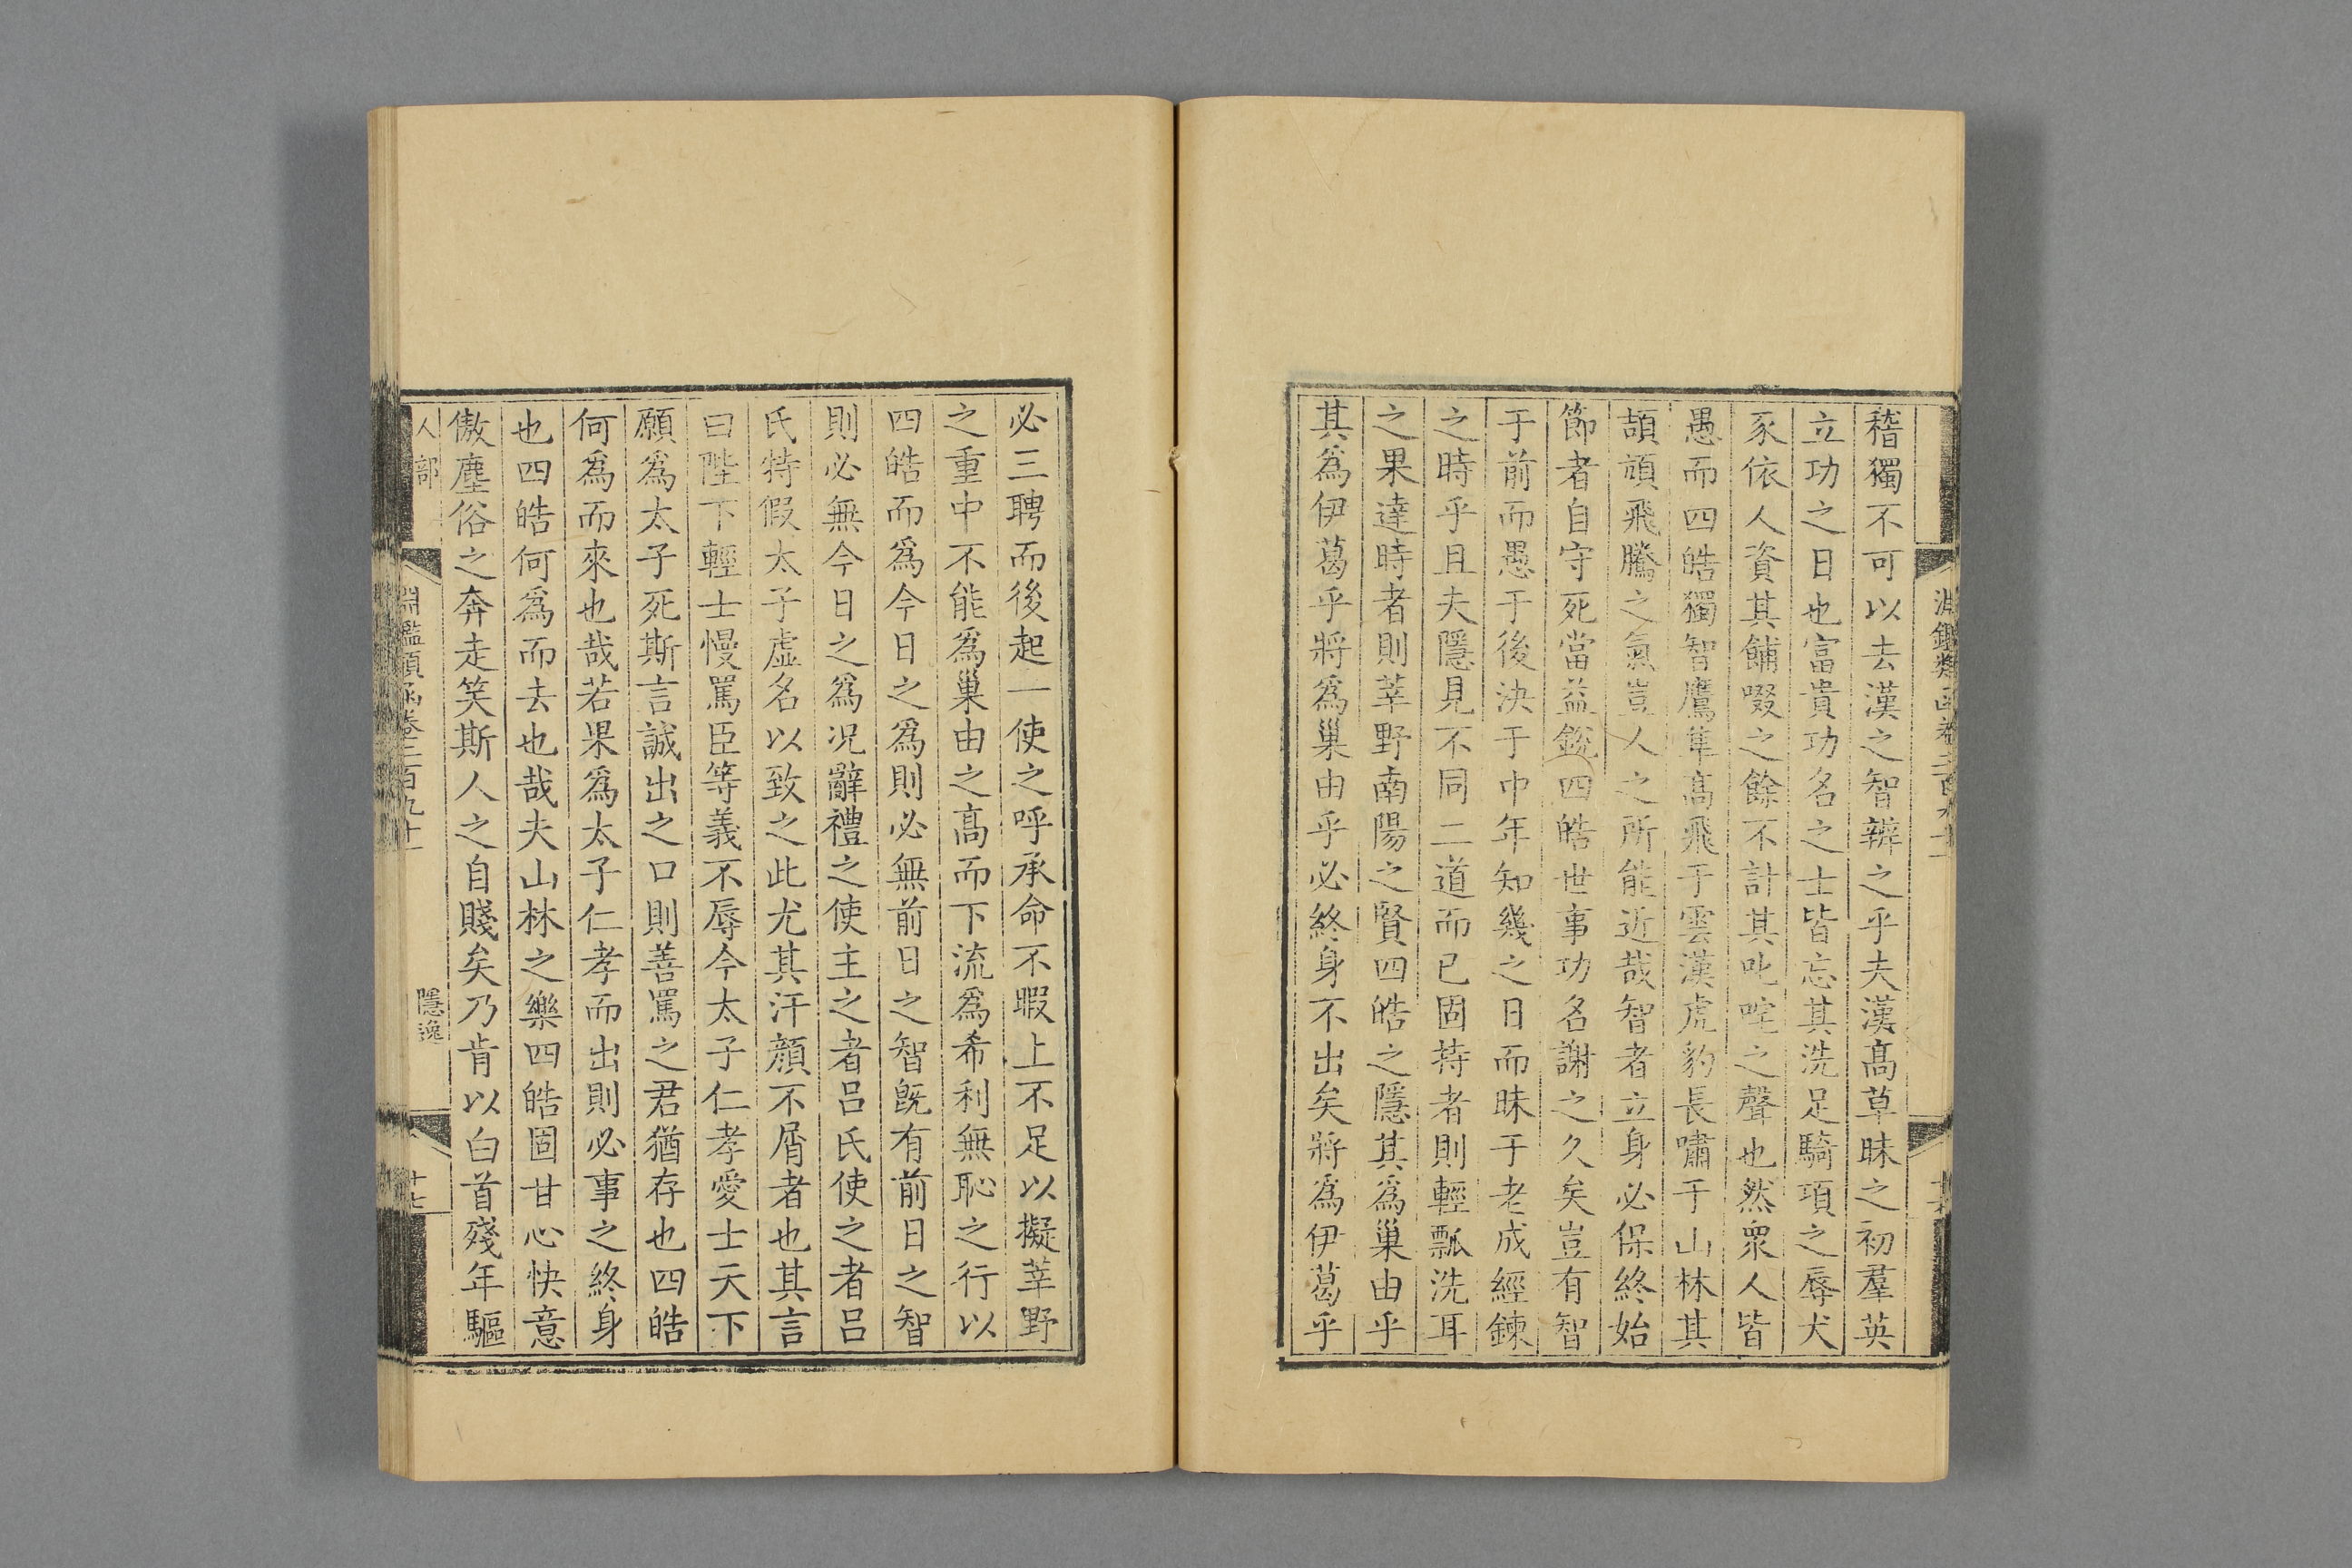 稽獨不可以去漢之智辨之乎夫漢髙草昧之初羣英
立功之日也富貴功名之士皆忘其洗足騎項之辱犬
豕依人資其餔啜之餘不計其叱咤之聲也然衆人皆
愚而四皓獨智鷹隼髙飛于雲漢虎豹長嘯于山林其
頡頏飛騰之氣豈人之所能近哉智者立身必保終始
節者自守死當益銳四皓世事功名謝之久矣豈有智
于前而愚于後決于中年知幾之日而昧于老成經鍊
之時乎且夫隱見不同二道而已固持者則輕瓢洗耳
之果達時者則莘野南陽之賢四皓之隱其爲巢由乎
其爲伊葛乎將爲巢由乎必終身不出矣將爲伊葛乎
必三聘而後起一使之呼承命不暇上不足以擬莘野
之重中不能爲巢由之髙而下流爲希利無恥之行以
四皓而爲今日之爲則必無前日之智旣有前日之智
則必無今日之爲况辭禮之使主之者呂氏使之者呂
氏特假太子虛名以致之此尤其汗顔不屑者也其言
曰陛下輕士慢罵臣等義不辱今太子仁孝愛士天下
願爲太子死斯言誠出之口則善罵之君猶存也四皓
何爲而來也哉若果爲太子仁孝而出則必事之終身
也四皓何爲而去也哉夫山林之樂四皓固甘心快意
傲塵俗之奔走笑斯人之自賤矣乃肯以白首殘年驅
人部
淵鑑類函卷二百九十一
隱逸
十七